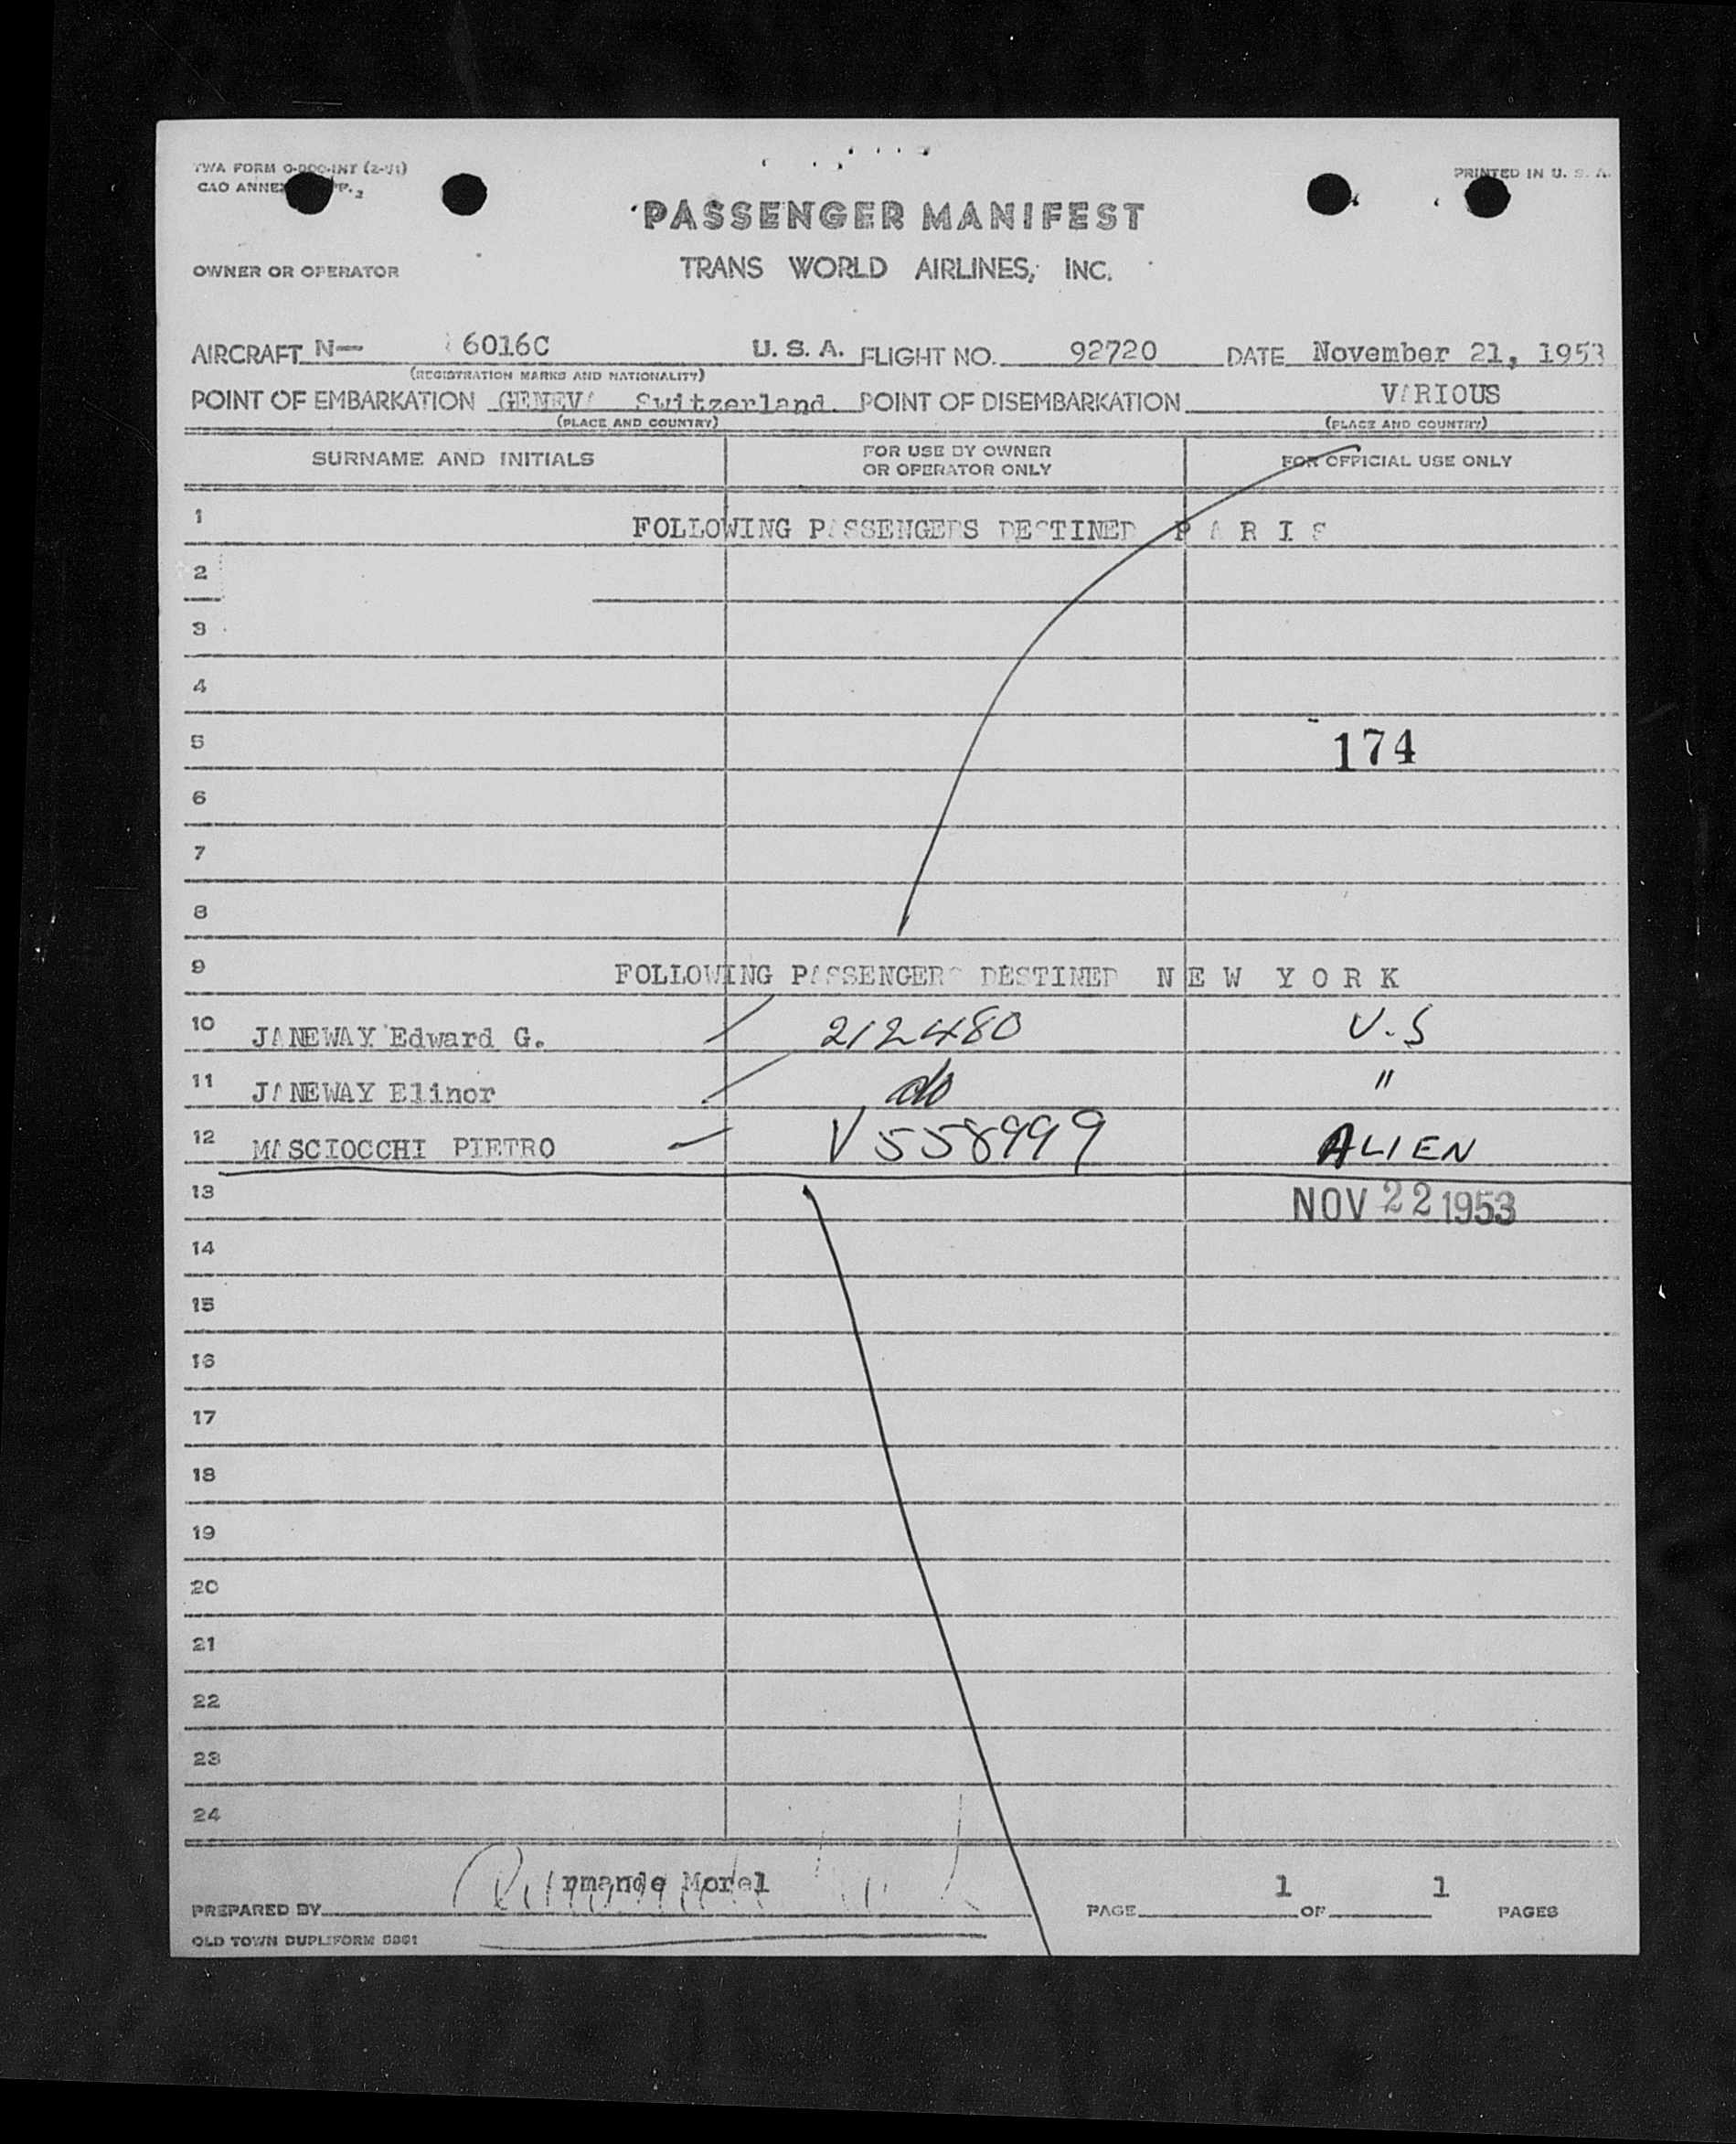 TWA FORM O-000-INT (2-51)
PRINTED IN U. S. A.
CAO ANNEX
PASSENGER MANIFEST
OWNER OR OPERATOR TRANS WORLD AIRLINES, INC.
AIRCRAFT N— 6016C U. S. A. FLIGHT NO. 92720 DATE November 21, 1953
(REGISTRATION MARKS AND NATIONALITY)
POINT OF EMBARKATION GENEVA Switzerland POINT OF DISEMBARKATION VARIOUS
(PLACE AND COUNTRY) (PLACE AND COUNTRY)
SURNAME AND INITIALS FOR USE BY OWNER OR OPERATOR ONLY FOR OFFICIAL USE ONLY
1 FOLLOWING PASSENGERS DESTINED P A R I S
2
3
4
5 174
6
7
8
9 FOLLOWING PASSENGERS DESTINED N E W Y O R K
10 JANEWAY Edward G. 212480 U.S
11 JANEWAY Elinor do "
12 MASCIOCCHI PIETRO V558999 ALIEN
13 NOV 22 1953
14
15
16
17
18
19
20
21
22
23
24
PREPARED BY rmande Morel PAGE 1 OF 1 PAGES
OLD TOWN DUPLIFORM